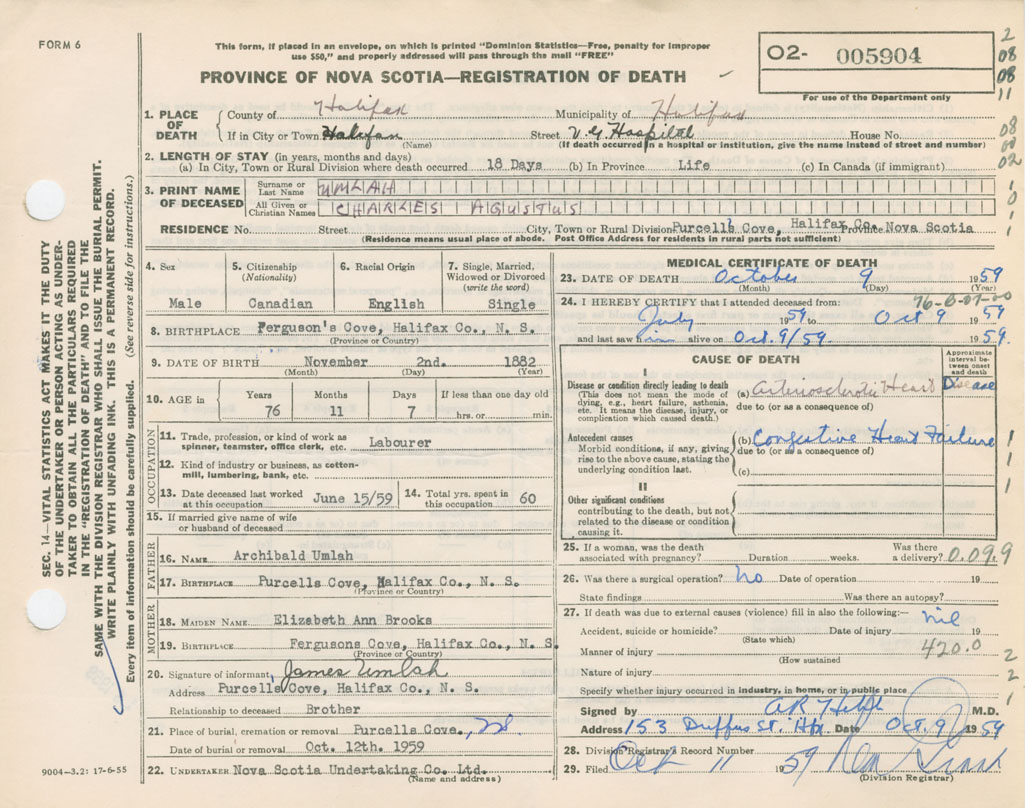 FORM 6
This form, if placed in an envelope, on which is printed "Dominion Statistics—Free, penalty for improper
use $50," and properly addressed will pass through the mail "FREE"
PROVINCE OF NOVA SCOTIA—REGISTRATION OF DEATH
O2- 005904
For use of the Department only
2
08
08
11
08
08
02
1
0
1
1
SEC. 14—VITAL STATISTICS ACT MAKES IT THE DUTY
OF THE UNDERTAKER OR PERSON ACTING AS UNDER-
TAKER TO OBTAIN ALL THE PARTICULARS REQUIRED
IN THE "REGISTRATION OF DEATH" AND TO FILE THE
SAME WITH THE DIVISION REGISTRAR WHO SHALL ISSUE THE BURIAL PERMIT.
WRITE PLAINLY WITH UNFADING INK. THIS IS A PERMANENT RECORD.
Every item of information should be carefully supplied. (See reverse side for instructions.)
1. PLACE OF DEATH
County of Halifax Municipality of Halifax
If in City or Town Halifax Street V.G. Hospital House No.
(Name) (If death occurred in a hospital or institution, give the name instead of street and number)
2. LENGTH OF STAY (in years, months and days)
(a) In City, Town or Rural Division where death occurred 18 Days (b) In Province Life (c) In Canada (if immigrant)
3. PRINT NAME OF DECEASED
Surname or Last Name UMLAH
All Given or Christian Names CHARLES AGUSTUS
RESIDENCE No. Street City, Town or Rural Division Purcells Cove, Halifax Co. Province Nova Scotia
(Residence means usual place of abode. Post Office Address for residents in rural parts not sufficient)
4. Sex 5. Citizenship (Nationality) 6. Racial Origin 7. Single, Married, Widowed or Divorced (write the word)
Male Canadian English Single
8. BIRTHPLACE Ferguson's Cove, Halifax Co., N. S.
(Province or Country)
9. DATE OF BIRTH November 2nd. 1882
(Month) (Day) (Year)
10. AGE in Years Months Days If less than one day old
76 11 7 hrs. or min.
OCCUPATION
11. Trade, profession, or kind of work as spinner, teamster, office clerk, etc. Labourer
12. Kind of industry or business, as cotton-mill, lumbering, bank, etc.
13. Date deceased last worked at this occupation June 15/59 14. Total yrs. spent in this occupation 60
15. If married give name of wife or husband of deceased
FATHER
16. NAME Archibald Umlah
17. BIRTHPLACE Purcells Cove, Halifax Co., N. S.
(Province or Country)
MOTHER
18. MAIDEN NAME Elizabeth Ann Brooks
19. BIRTHPLACE Fergusons Cove, Halifax Co., N. S.
(Province or Country)
20. Signature of informant James Umlah
Address Purcells Cove, Halifax Co., N. S.
Relationship to deceased Brother
21. Place of burial, cremation or removal Purcells Cove., NS.
Date of burial or removal Oct. 12th. 1959
22. UNDERTAKER Nova Scotia Undertaking Co. Ltd.
(Name and address)
9004—3.2: 17-6-55
MEDICAL CERTIFICATE OF DEATH
23. DATE OF DEATH October 9 1959
(Month) (Day) (Year)
24. I HEREBY CERTIFY that I attended deceased from:
July 1959 to Oct 9 1959
and last saw him alive on Oct. 9/59. 1959.
CAUSE OF DEATH
Approximate interval between onset and death
I
Disease or condition directly leading to death
(This does not mean the mode of dying, e.g., heart failure, asthenia, etc. It means the disease, injury, or complication which caused death.)
(a) Arteriosclerotic Heart Disease
due to (or as a consequence of)
Antecedent causes
Morbid conditions, if any, giving rise to the above cause, stating the underlying condition last.
(b) Congestive Heart Failure
due to (or as a consequence of)
(c)
1
1
1
II
Other significant conditions
contributing to the death, but not related to the disease or condition causing it.
25. If a woman, was the death associated with pregnancy? Duration weeks. Was there a delivery? 0.099
26. Was there a surgical operation? No Date of operation 19
State findings Was there an autopsy?
27. If death was due to external causes (violence) fill in also the following:— nil
Accident, suicide or homicide? Date of injury 19
(State which)
Manner of injury 420.0
(How sustained)
2
2
1
Nature of injury
Specify whether injury occurred in industry, in home, or in public place
Signed by M.D.
Address 153 Duffus St. Hfx. Date Oct. 9 1959
28. Division Registrar's Record Number
29. Filed Oct 11 1959
(Division Registrar)